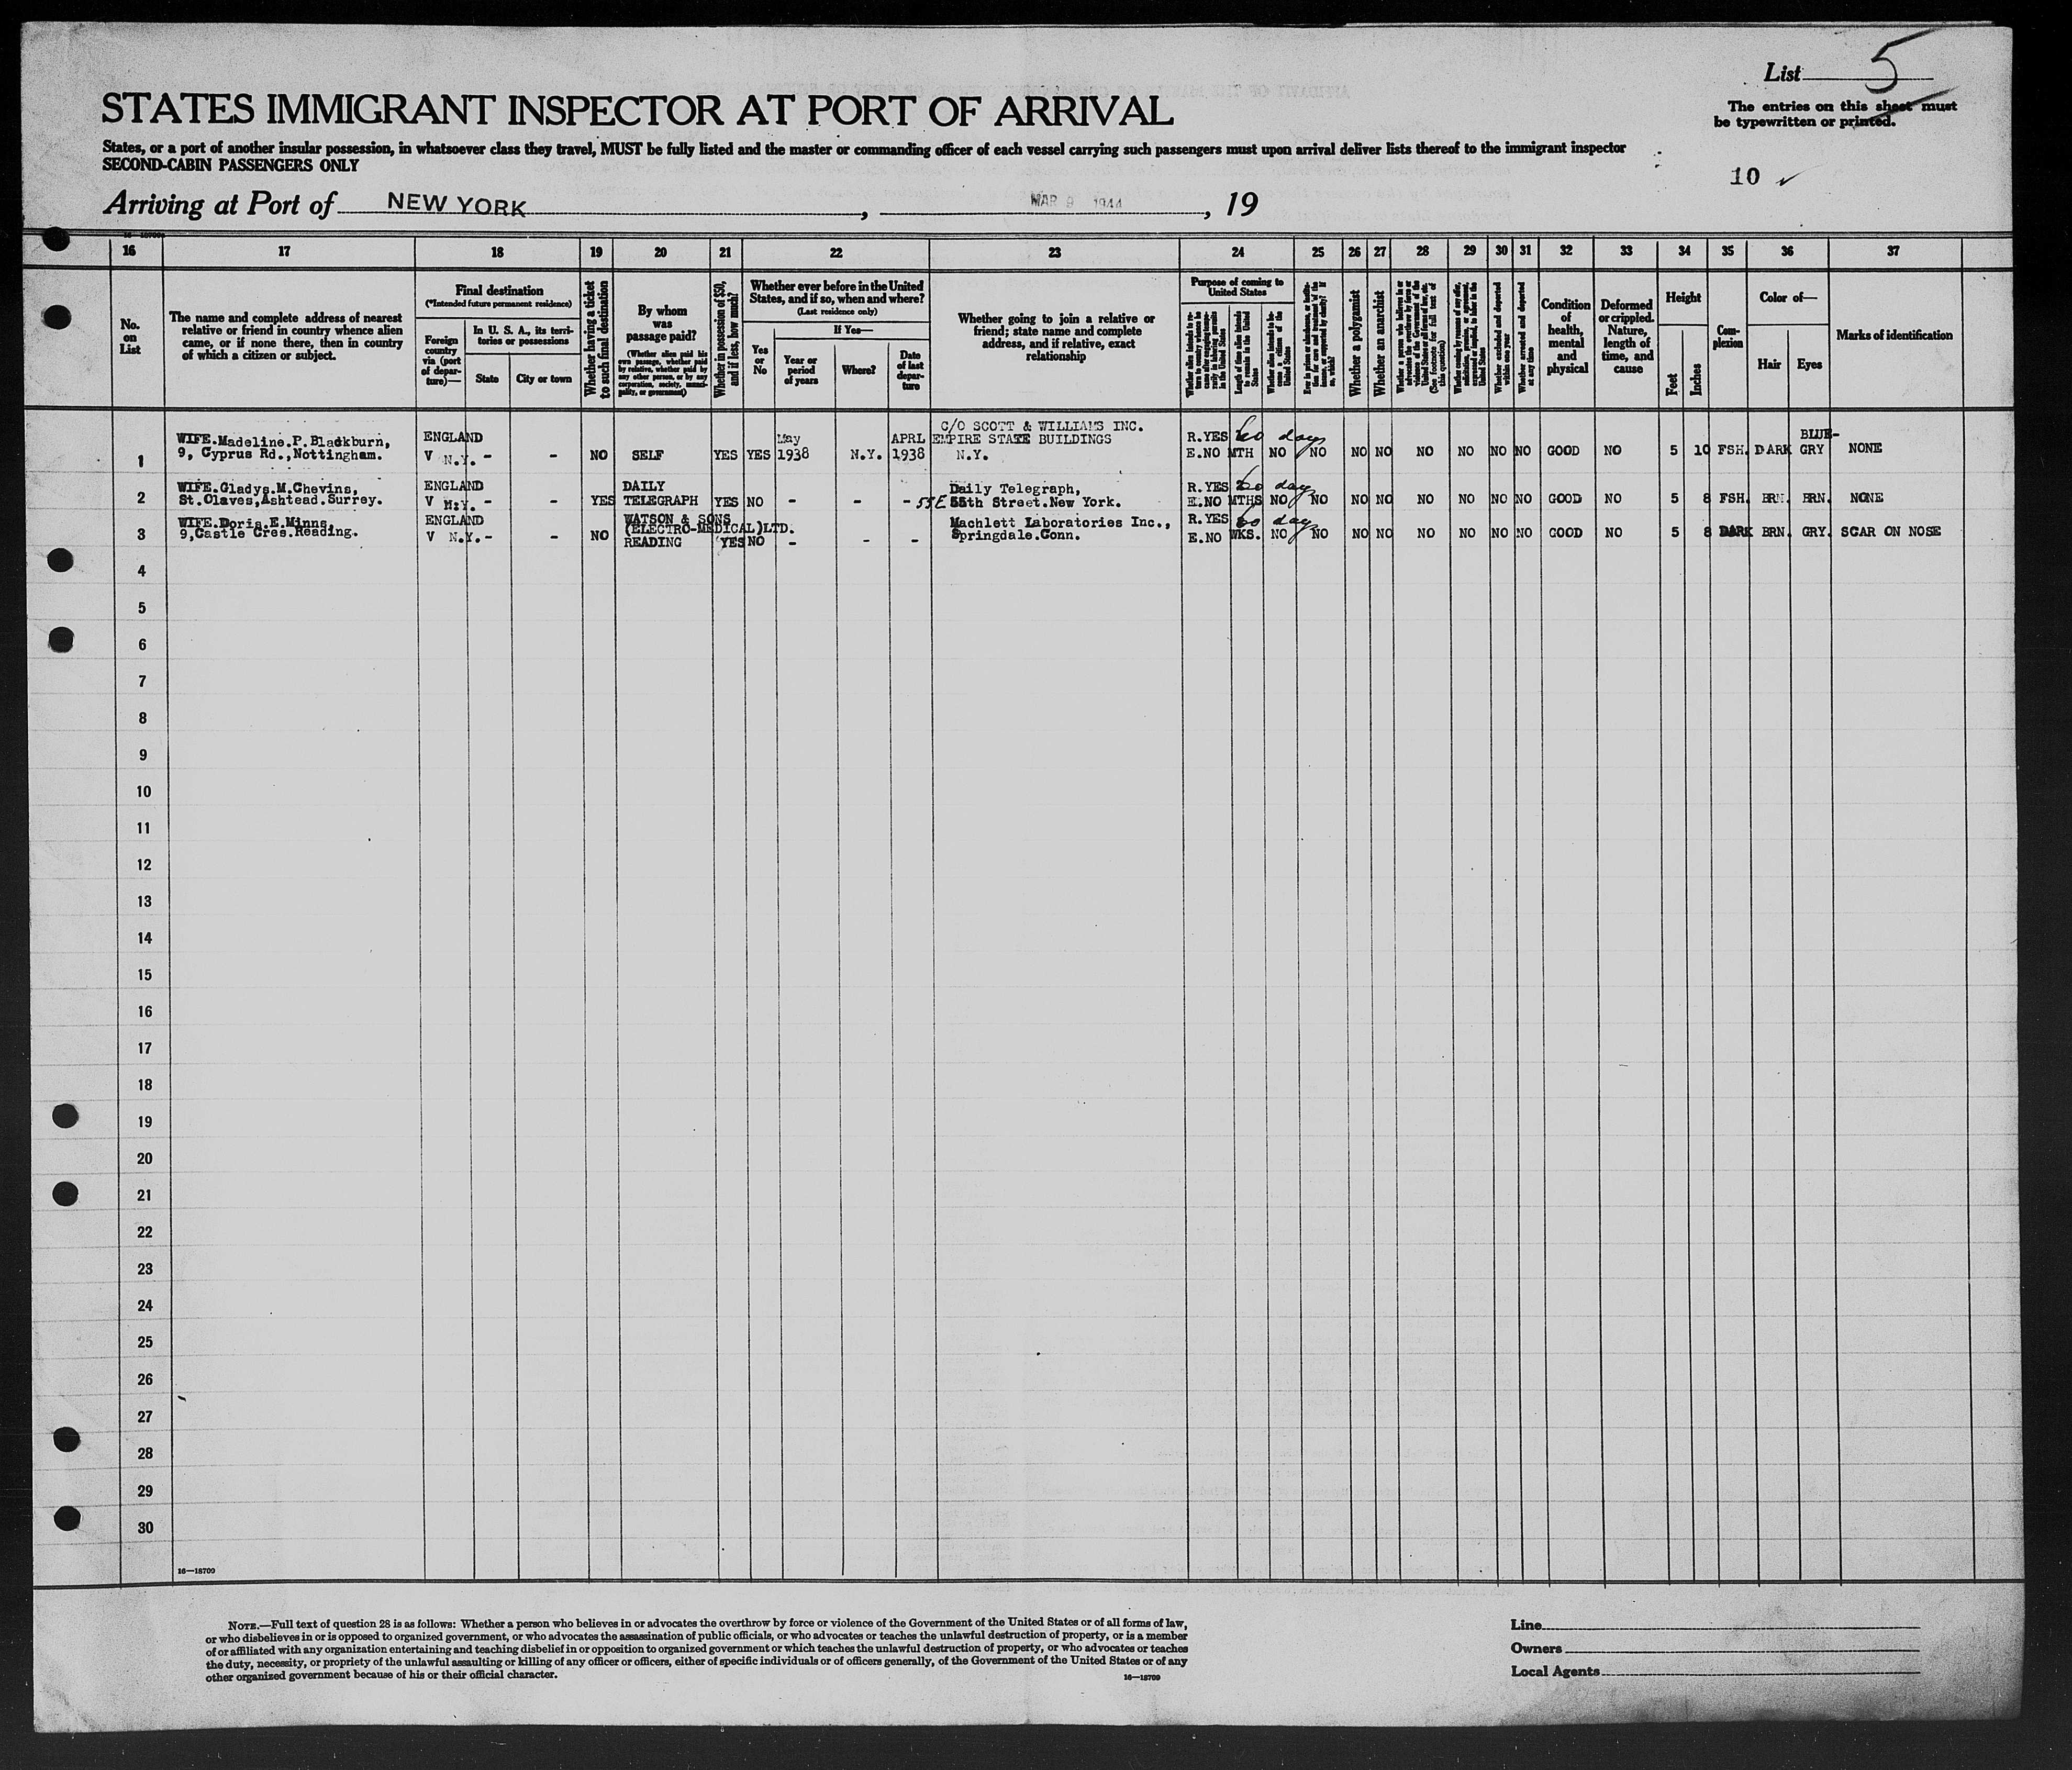 List 5
The entries on this sheet must
be typewritten or printed.
STATES IMMIGRANT INSPECTOR AT PORT OF ARRIVAL
States, or a port of another insular possession, in whatsoever class they travel, MUST be fully listed and the master or commanding officer of each vessel carrying such passengers must upon arrival deliver lists thereof to the immigrant inspector
SECOND-CABIN PASSENGERS ONLY
10
Arriving at Port of NEW YORK, MAR 9 1944, 19
16 17 18 19 20 21 22 23 24 25 26 27 28 29 30 31 32 33 34 35 36 37
No.
on
List
The name and complete address of nearest
relative or friend in country whence alien
came, or if none there, then in country
of which a citizen or subject.
Final destination
(*Intended future permanent residence)
Foreign
country
via (port
of depar-
ture)—
In U. S. A., its terri-
tories or possessions
State
City or town
Whether having a ticket
to such final destination
By whom
was
passage paid?
(Whether alien paid his
own passage, whether paid
by relative, whether paid by
any other person, or by any
corporation, society, munici-
pality, or government)
Whether in possession of $50,
and if less, how much?
Whether ever before in the United
States, and if so, when and where?
(Last residence only)
Yes
or
No
If Yes—
Year or
period
of years
Where?
Date
of last
depar-
ture
Whether going to join a relative or
friend; state name and complete
address, and if relative, exact
relationship
Purpose of coming to
United States
Length of time alien intends
to remain in the United
States
Whether alien intends to be-
come a citizen of the
United States
Whether a polygamist
Whether an anarchist
(See footnote for full text of
this question)
Whether excluded and deported
within one year
Whether arrested and deported
at any time
Condition
of
health,
mental
and
physical
Deformed
or crippled.
Nature,
length of
time, and
cause
Height
Feet
Inches
Com-
plexion
Color of—
Hair
Eyes
Marks of identification
C/O SCOTT & WILLIAMS INC.
WIFE.Madeline.P.Blackburn, ENGLAND May APRL EMPIRE STATE BUILDINGS R.YES 60 days BLUE-
1 9, Cyprus Rd.,Nottingham. V N.Y. - - NO SELF YES YES 1938 N.Y. 1938 N.Y. E.NO MTH NO NO NO NO NO NO NO NO GOOD NO 5 10 FSH. DARK GRY NONE
WIFE.Gladys.M.Chevins, ENGLAND DAILY Daily Telegraph, R.YES 60 days
2 St.Olaves,Ashtead.Surrey. V N.Y. - - YES TELEGRAPH YES NO - - - 55E 55th Street.New York. E.NO MTHS NO NO NO NO NO NO NO NO GOOD NO 5 8 FSH. BRN. BRN. NONE
WIFE.Doris.E.Minns, ENGLAND WATSON & SONS Machlett Laboratories Inc., R.YES 60 days
3 9,Castle Cres.Reading. V N.Y. - - NO (ELECTRO-MEDICAL)LTD. Springdale.Conn. E.NO WKS. NO NO NO NO NO NO NO NO GOOD NO 5 8 DARK BRN. GRY. SCAR ON NOSE
READING YES NO - - -
4
5
6
7
8
9
10
11
12
13
14
15
16
17
18
19
20
21
22
23
24
25
26
27
28
29
30
16—18709
NOTE.—Full text of question 28 is as follows: Whether a person who believes in or advocates the overthrow by force or violence of the Government of the United States or of all forms of law,
or who disbelieves in or is opposed to organized government, or who advocates the assassination of public officials, or who advocates or teaches the unlawful destruction of property, or is a member
of or affiliated with any organization entertaining and teaching disbelief in or opposition to organized government or which teaches the unlawful destruction of property, or who advocates or teaches
the duty, necessity, or propriety of the unlawful assaulting or killing of any officer or officers, either of specific individuals or of officers generally, of the Government of the United States or of any
other organized government because of his or their official character.
16—18709
Line
Owners
Local Agents